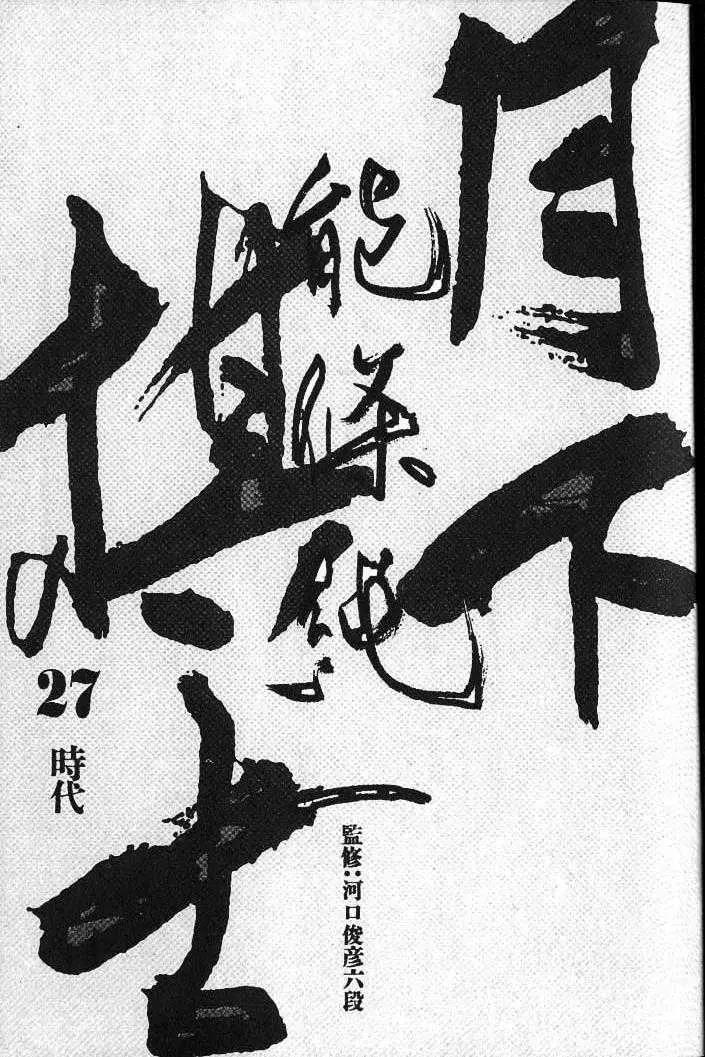 月下
棋士
能條純一
27
時代
監修:河口俊彦六段